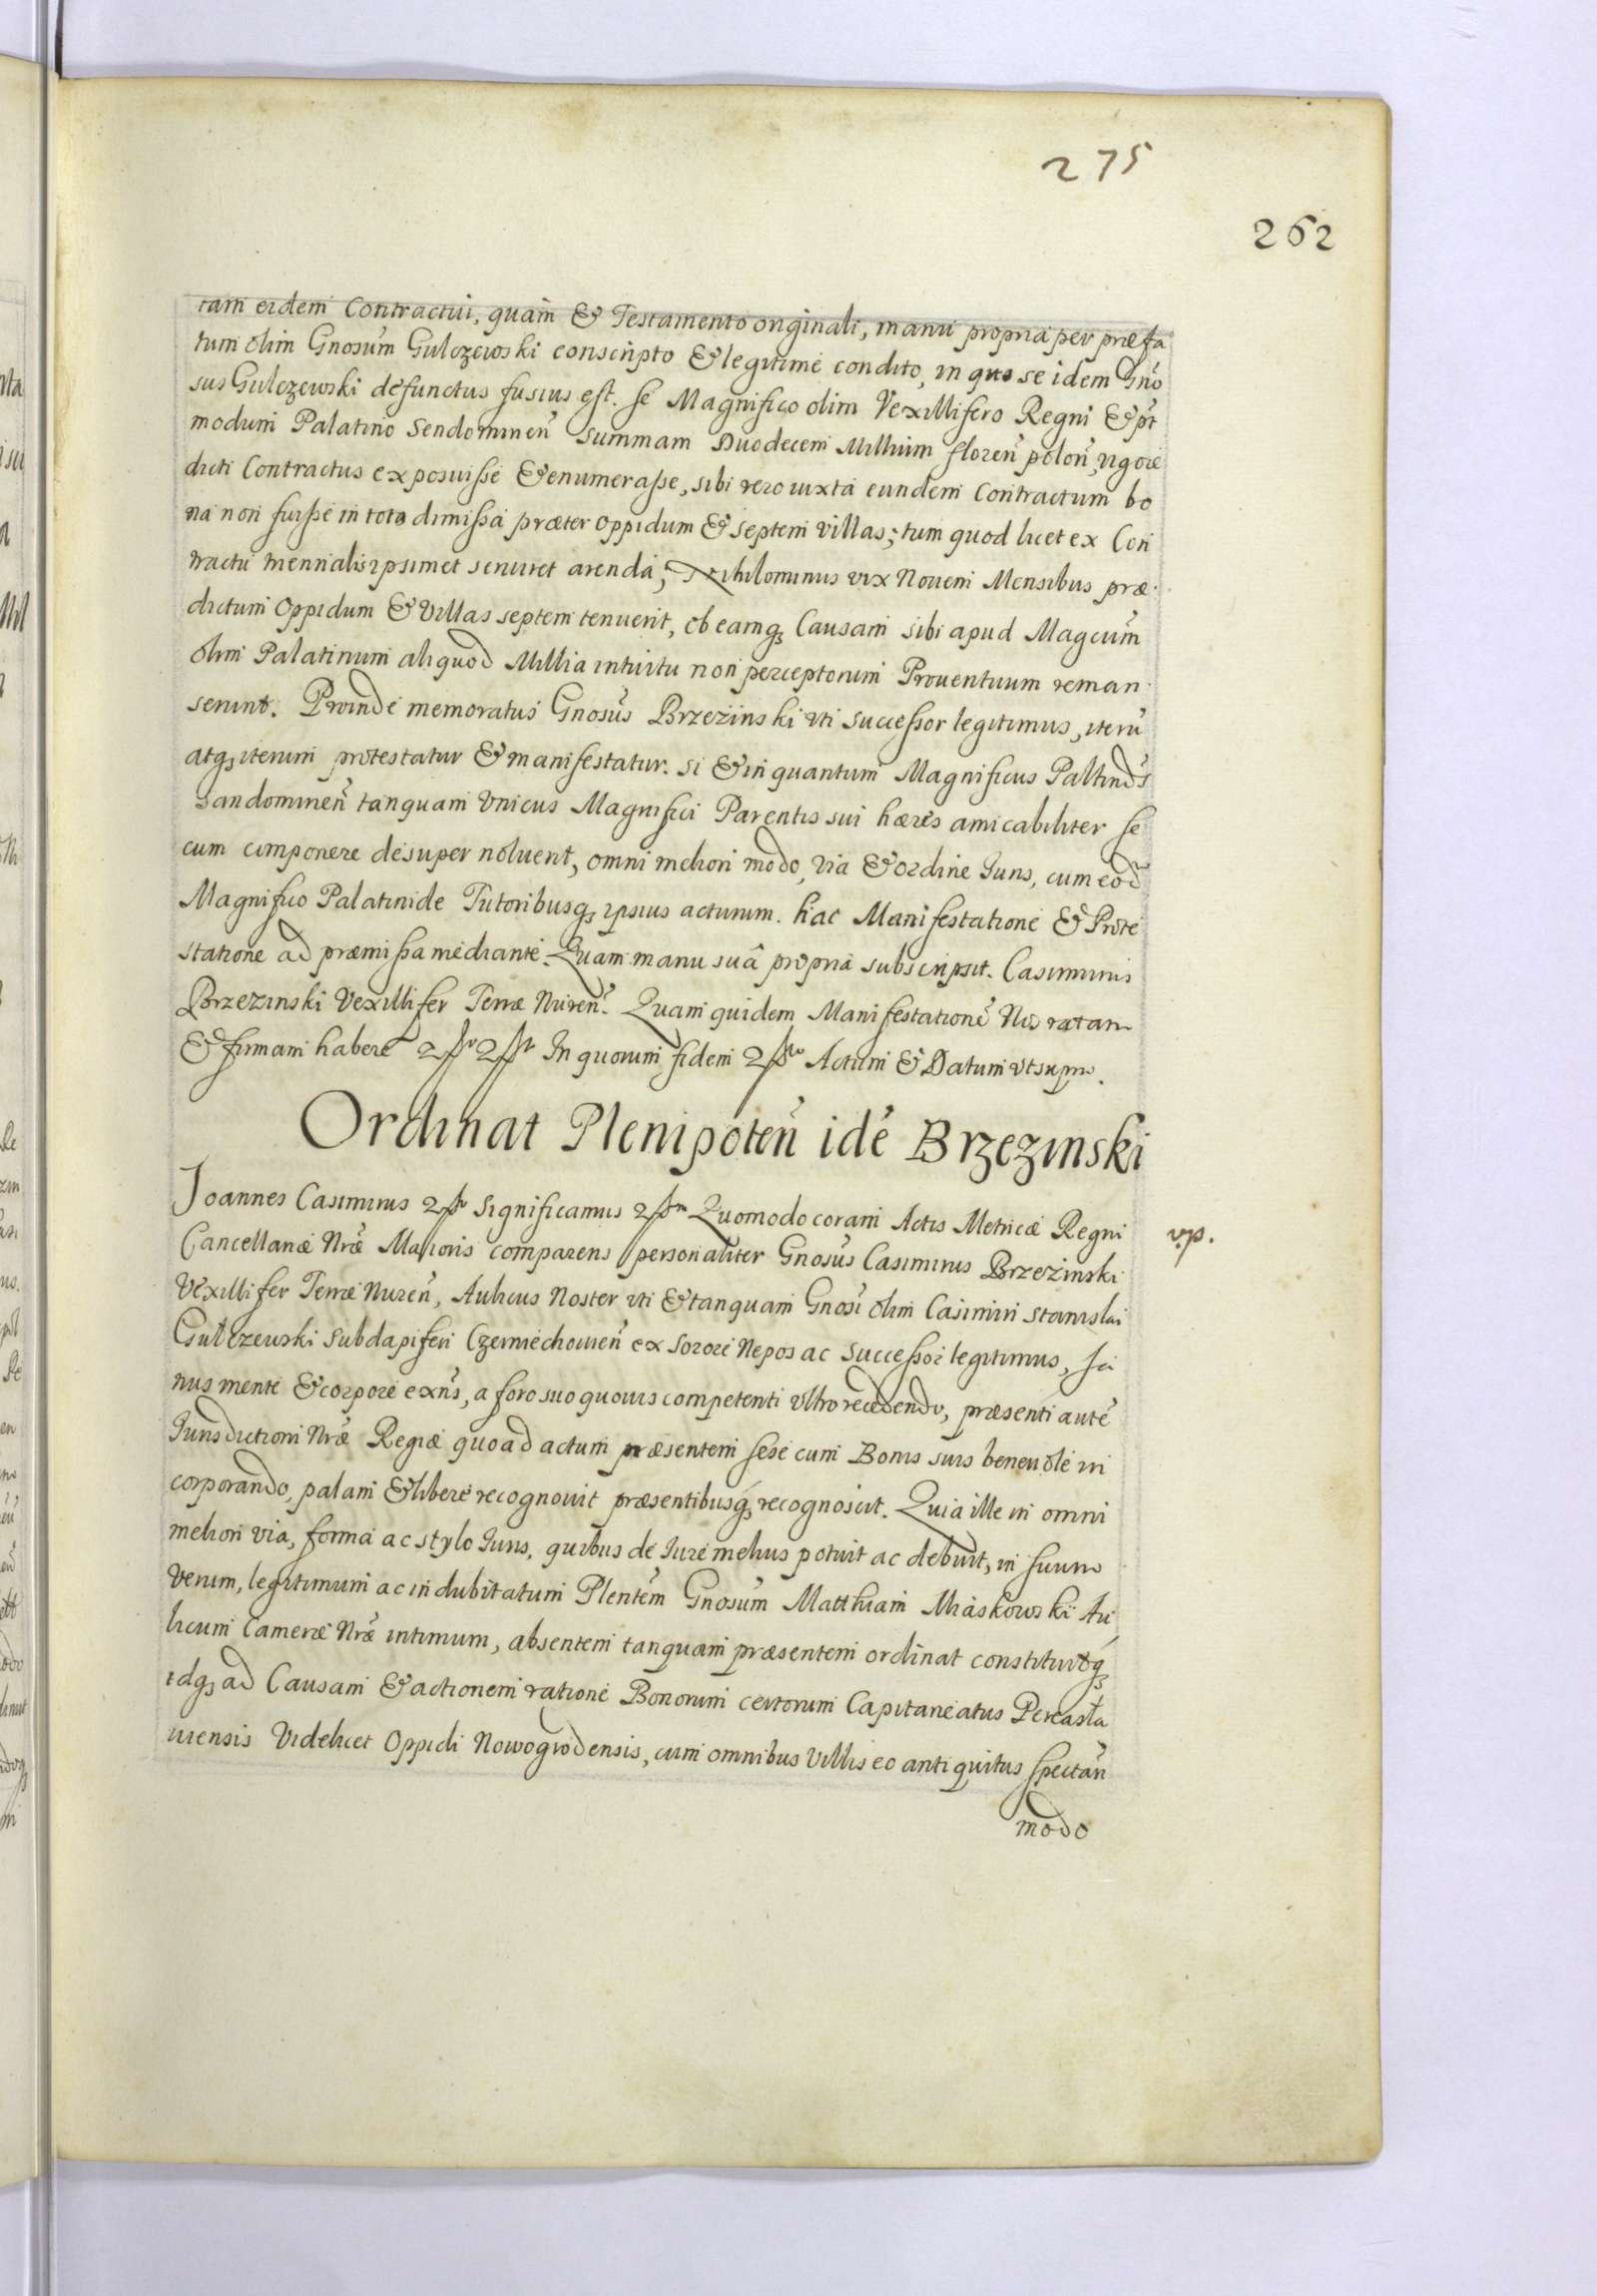 275
262
tam eidem Contractui, quàm & Testamento originali, manu propria per præfa
tum olim Gnosum̃ Gulczewski conscripto & legitime condito, in quo se idem Gño
sus Gulczewski defunctus fusius est. se Magnifico olim Vexillifero Regni & pt̃
modum Palatino Sendomireñ summam Duodecem Millium floreñ poloñ, vigore
dicti Contractus exposuisse & enumerasse, sibi vero iuxta eundem Contractum bo
na non fuisse in toto dimissa præter oppidum & septem villas; tum quod licet ex Con
tractu triennalis ipsimet serviret arenda; Nihilominus vix Novem Mensibus præ
dictum Oppidum & Villas septem tenuerit, ob eamq; Causam sibi apud Magcum̃
olim Palatinum aliquod Millia intuitu non perceptorum Proventuum reman
serint. Proinde memoratus Gnosus̃ Brzeziinski uti successor legitimus, iterũ
atq; iterum protestatur & manifestatur. Si & in quantum Magnificus Paltinds̃
Sandomireñ tanquam Vnicus Magnifici Parentis sui hæres amicabiliter se
cum componere desuper noluerit, omni meliori modo, via & ordine Iuris, cum eod̃
Magnifico Palatinide Tutoribusq; ipsius acturum. hac Manifestatione & Prote
statione ad præmissa mediante. Quam manu suâ propria subscripsit. Casimirus
Brzezinski Vexillifer Terræ Nureñ. Quam quidem Manifestationẽ Nos ratam
& firmam habere In quorum fidem Actum & Datum ut supra.
Ordinat Plenipoteñ idẽ Brzezinski
Joannes Casimirus significamus Quomodo coram Actis Metricæ Regni
vip.
Cancellariæ Nræ̃ Maioris comparens personaliter Gnosus̃ Casimirus Brzezinski
Vexillifer Terræ Nureñ, Aulicus Noster uti & tanquam Gnosĩ olim Casimiri Stanislai
Gulczewski subdapiferi Czerniechovieñ ex sorore Nepos ac successor legitimus, sa
nus mente & corpore exñs, a foro suo quovis competenti ultro recedendo, præsenti autẽ
Iurisdictioni Nræ̃ Regiæ quoad actum præsentem sese cum Bonis suis benevole in
corporando, palam & libere recognovit præsentibusq; recognoscit. Quia ille in omni
meliori via, forma ac stylo Iuris, quibus de Iure melius potuit ac debuit, in suum
verum, legitimum ac indubitatum Plentem̃ Gnosum̃ Matthiam Miaskowski Au
licum Cameræ Nræ̃ intimum, absentem tanquam præsentem ordinat constituitq;
idq; ad Causam & actionem ratione Bonorum certorum Capitaneatus Pereasla
viensis Videlicet Oppidi Nowogrodensis, cum omnibus Villis eo antiquitus spectañ
modo